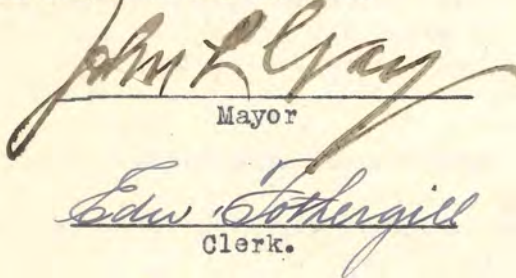 John L Gray
Mayor
Edw. Fothergill
Clerk.